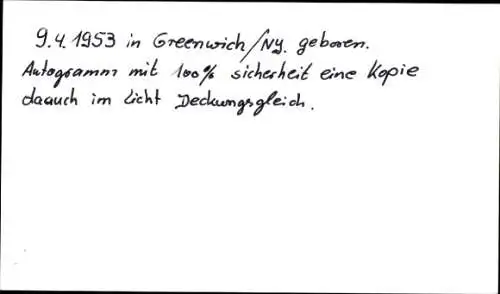 9.4.1953 in Greenwich/NY. geboren.
Autogramm mit 100% sicherheit eine Kopie
daauch im Licht Deckungsgleich.